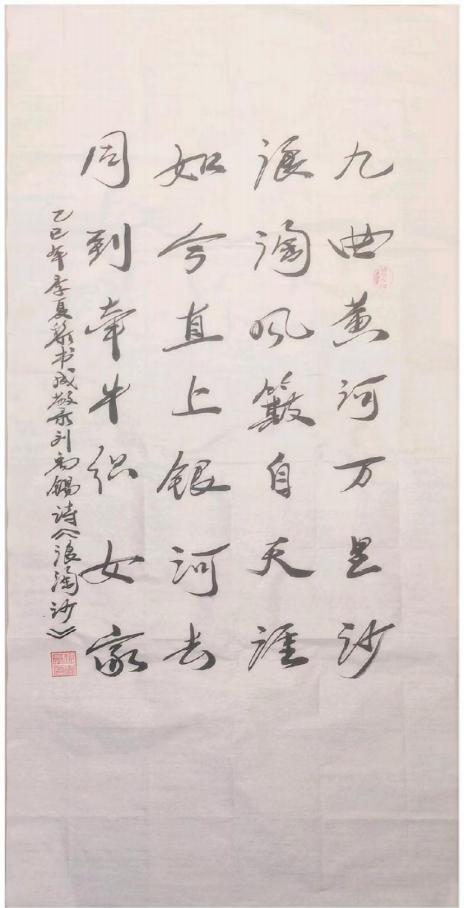 九曲黄河万里沙
浪淘风簸自天涯
如今直上银河去
同到牵牛织女家
乙巳年季夏书成敬录刘禹锡诗《浪淘沙》